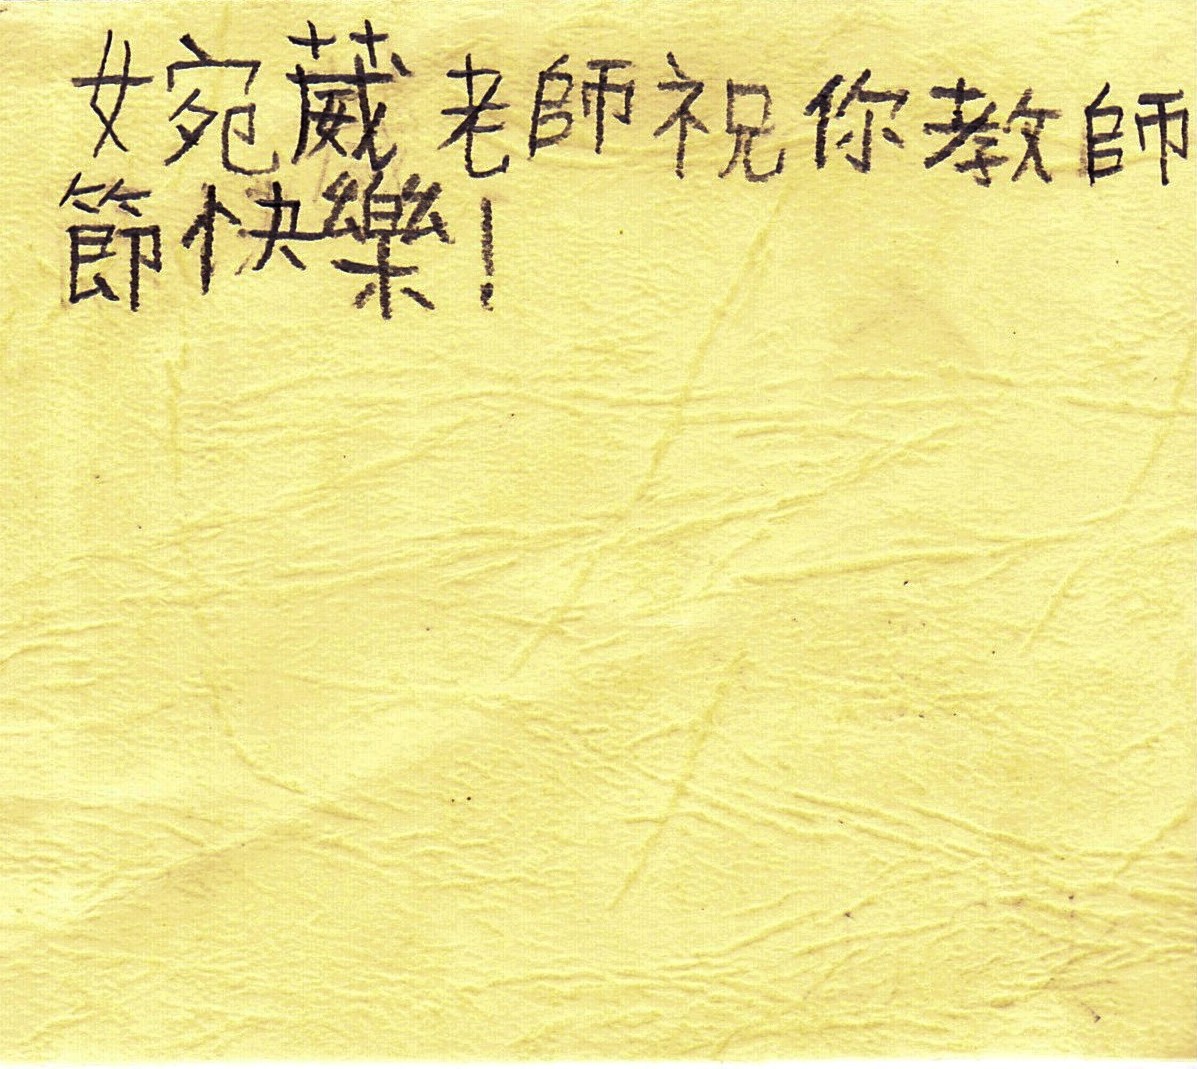 婉葳老師祝你教師
節快樂!